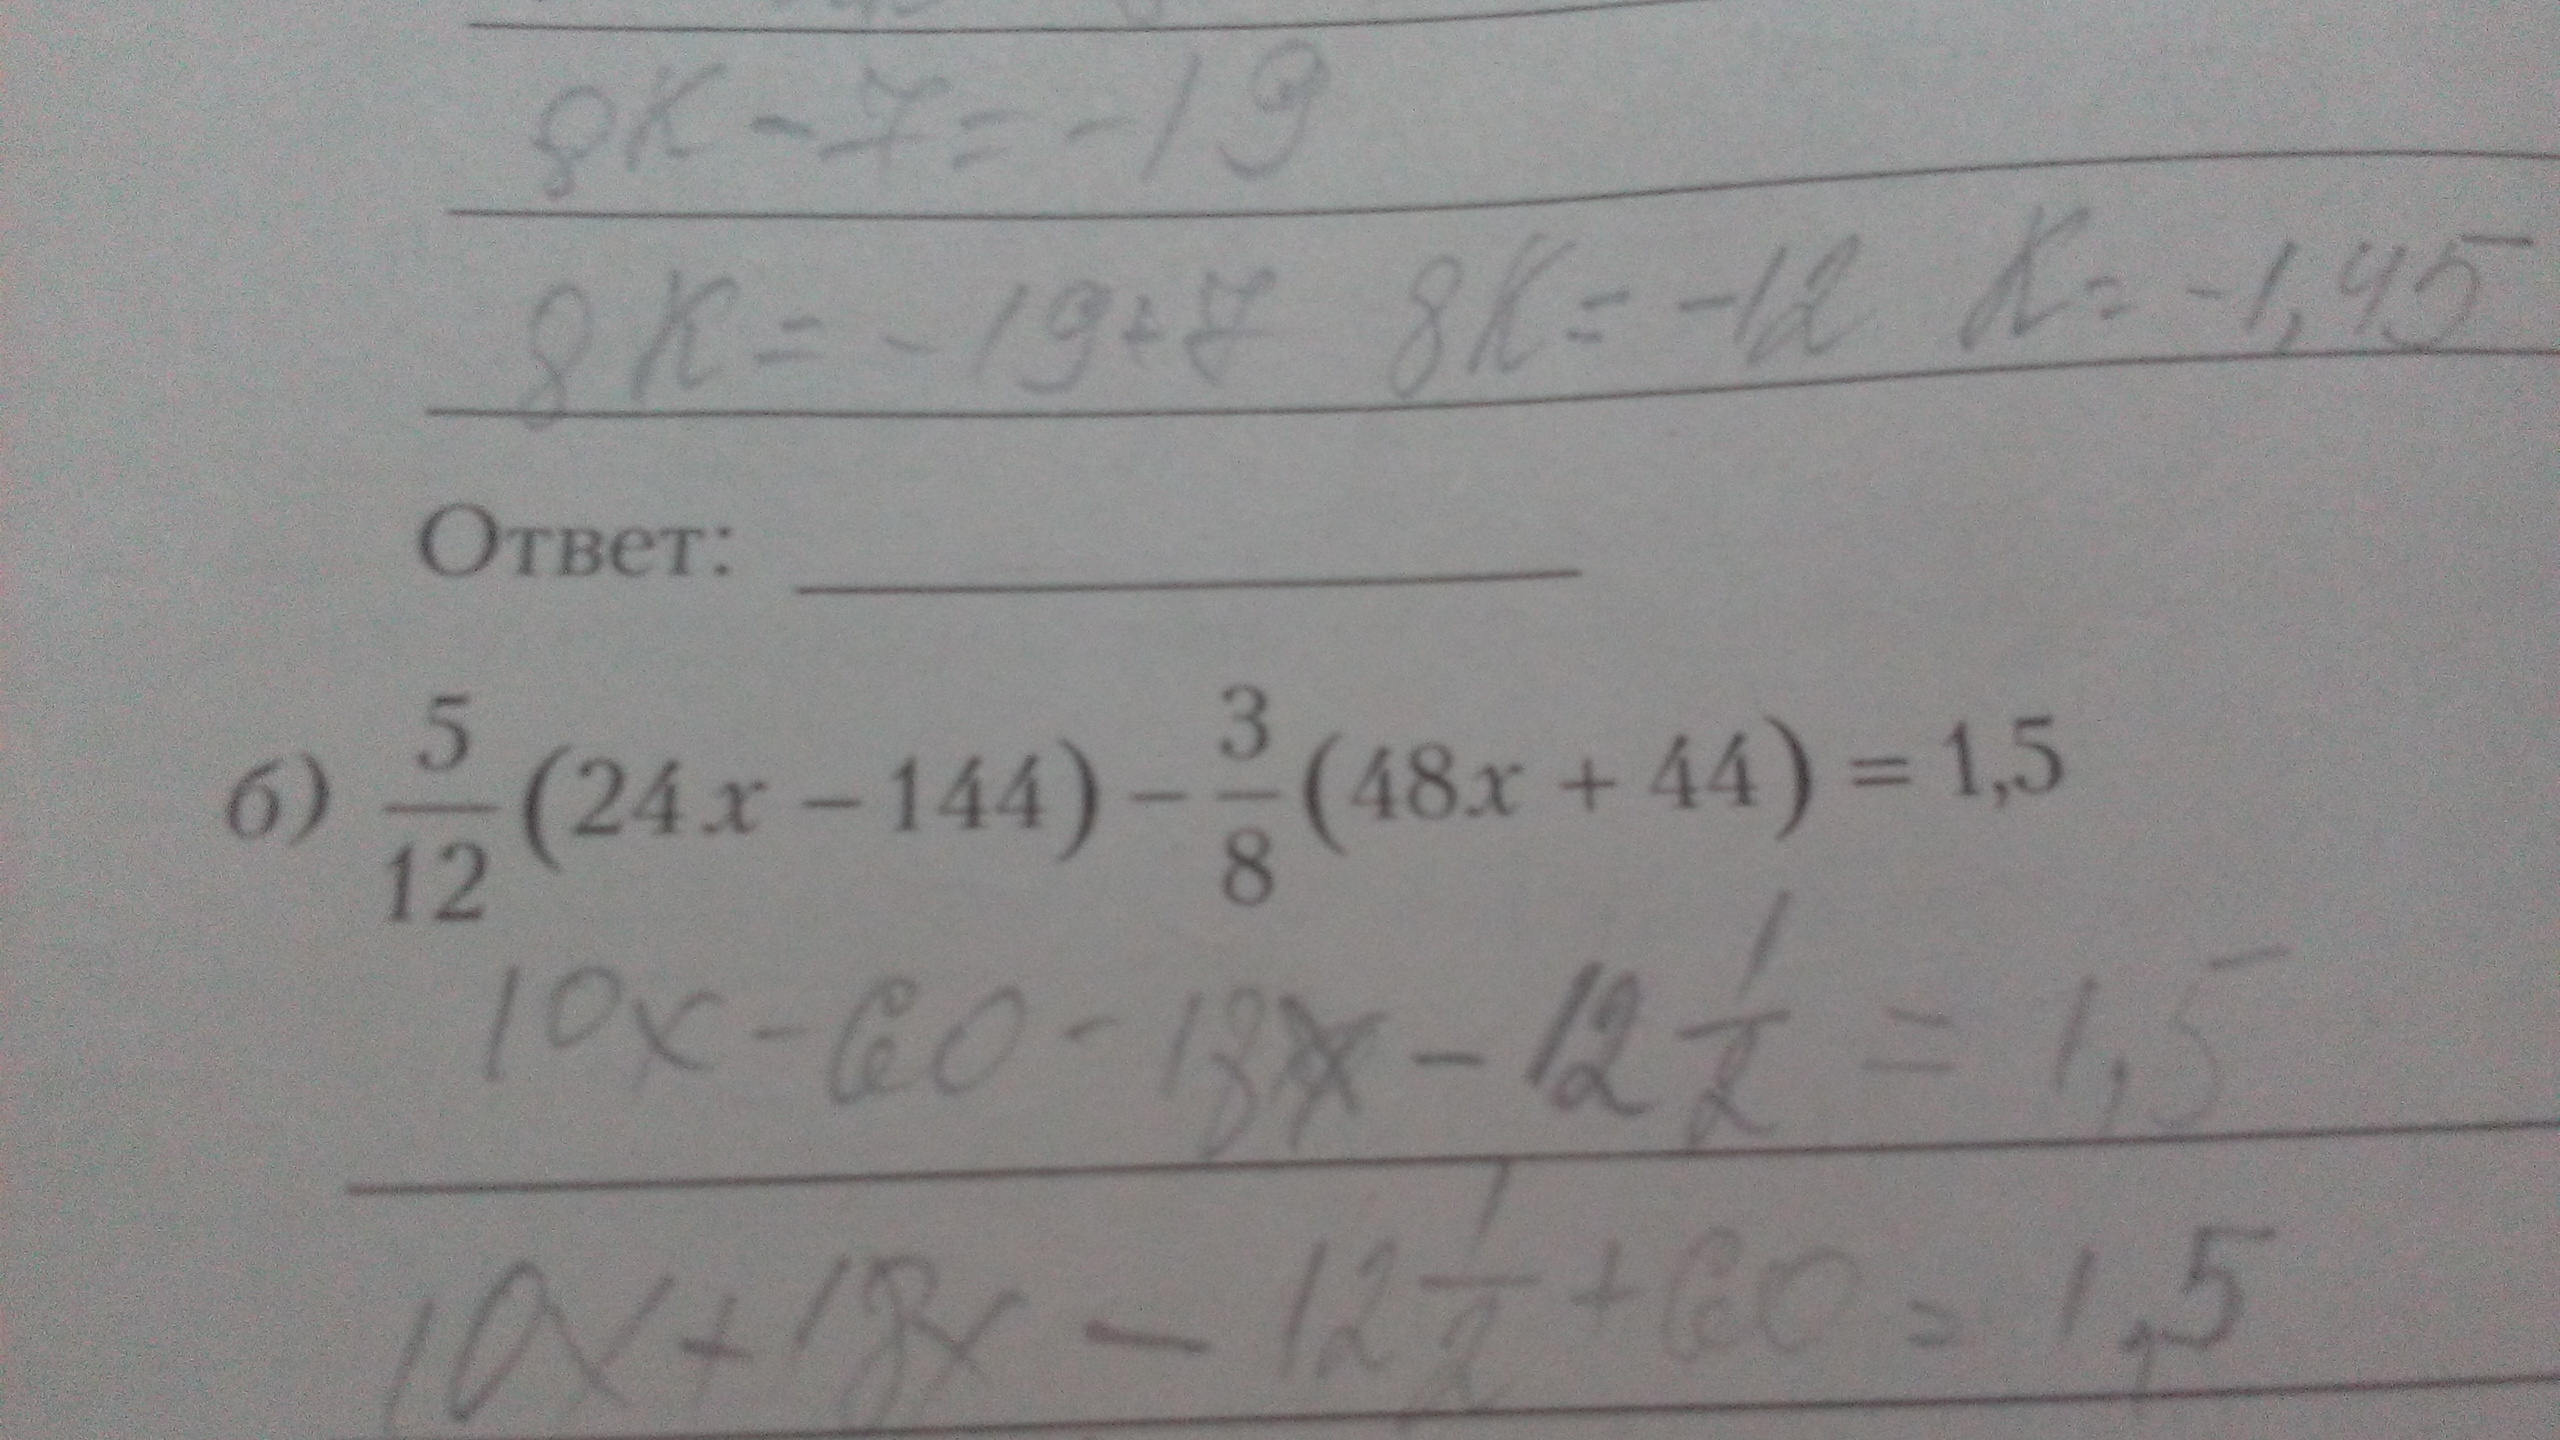 8x - 7 = -19
8x = -19+7 8x = -12 x = -1,45
Ответ:
б) 5/12 (24x − 144) − 3/8 (48x + 44) = 1,5
10x - 60 - 18x - 12 1/2 = 1,5
10x + 18x - 12 1/2 + 60 = 1,5